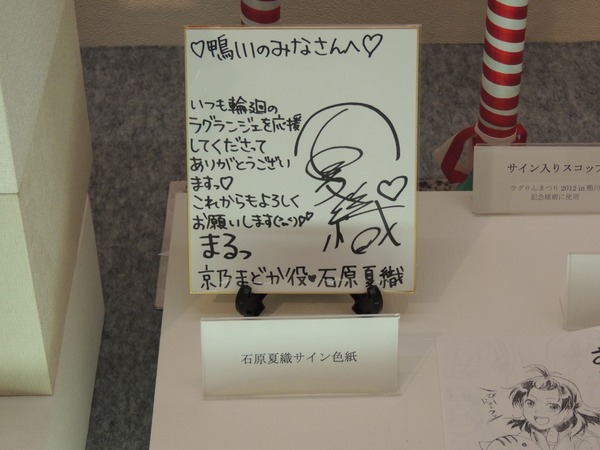 ♡鴨川のみなさんへ♡
いつも輪廻の
ラグランジェを応援
してくださって
ありがとうござい
ますっ♡
これからもよろしく
お願いします
まるっ
京乃まどか役♥石原夏織
夏織
石原夏織サイン色紙
サイン入りスコップ
ラグりんまつり2012 in 鴨川
記念植樹に使用
さ